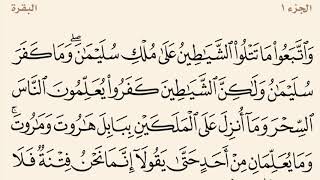 الجزء ١ البقرة
وَٱتَّبَعُوا۟ مَا تَتْلُوا۟ ٱلشَّيَٰطِينُ عَلَىٰ مُلْكِ سُلَيْمَٰنَ ۖ وَمَا كَفَرَ
سُلَيْمَٰنُ وَلَٰكِنَّ ٱلشَّيَٰطِينَ كَفَرُوا۟ يُعَلِّمُونَ ٱلنَّاسَ
ٱلسِّحْرَ وَمَآ أُنزِلَ عَلَى ٱلْمَلَكَيْنِ بِبَابِلَ هَٰرُوتَ وَمَٰرُوتَ ۚ
وَمَا يُعَلِّمَانِ مِنْ أَحَدٍ حَتَّىٰ يَقُولَآ إِنَّمَا نَحْنُ فِتْنَةٌ فَلَا